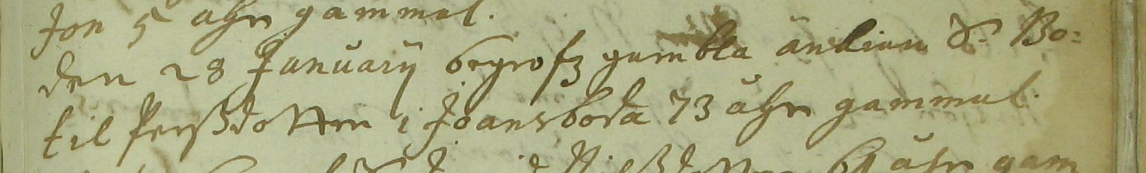 Jon 5 åhr gammal.
den 28 Januarij begrofz gambla änkian S. Bo=
til Perßdotter i Joansboda 73 åhr gammul.
åhr gam